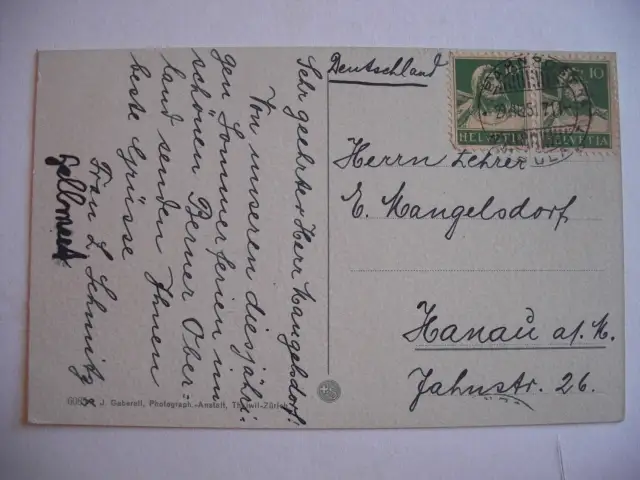 Sehr geehrter Herr Mangelsdorf!
Von unseren diesjähri-
gen Sommerferien im
schönen Berner Ober-
land senden Ihnen
beste Grüsse
Frau L. Schmitz
Deutschland
HELVETIA
10
HELVETIA
Herrn Lehrer
E. Mangelsdorf
Hanau a/M.
Jahnstr. 26.
J. Gaberell, Photograph.-Anstalt, Thalwil-Zürich